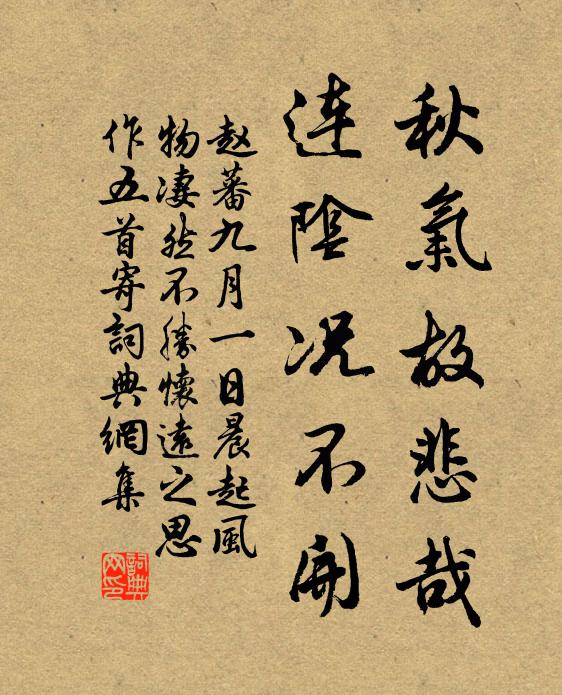 秋氣故悲哉
連陰况不開
赵蕃九月一日晨起風
物凄然不勝懷遠之思
作五首寄詞典網集
詞典网印